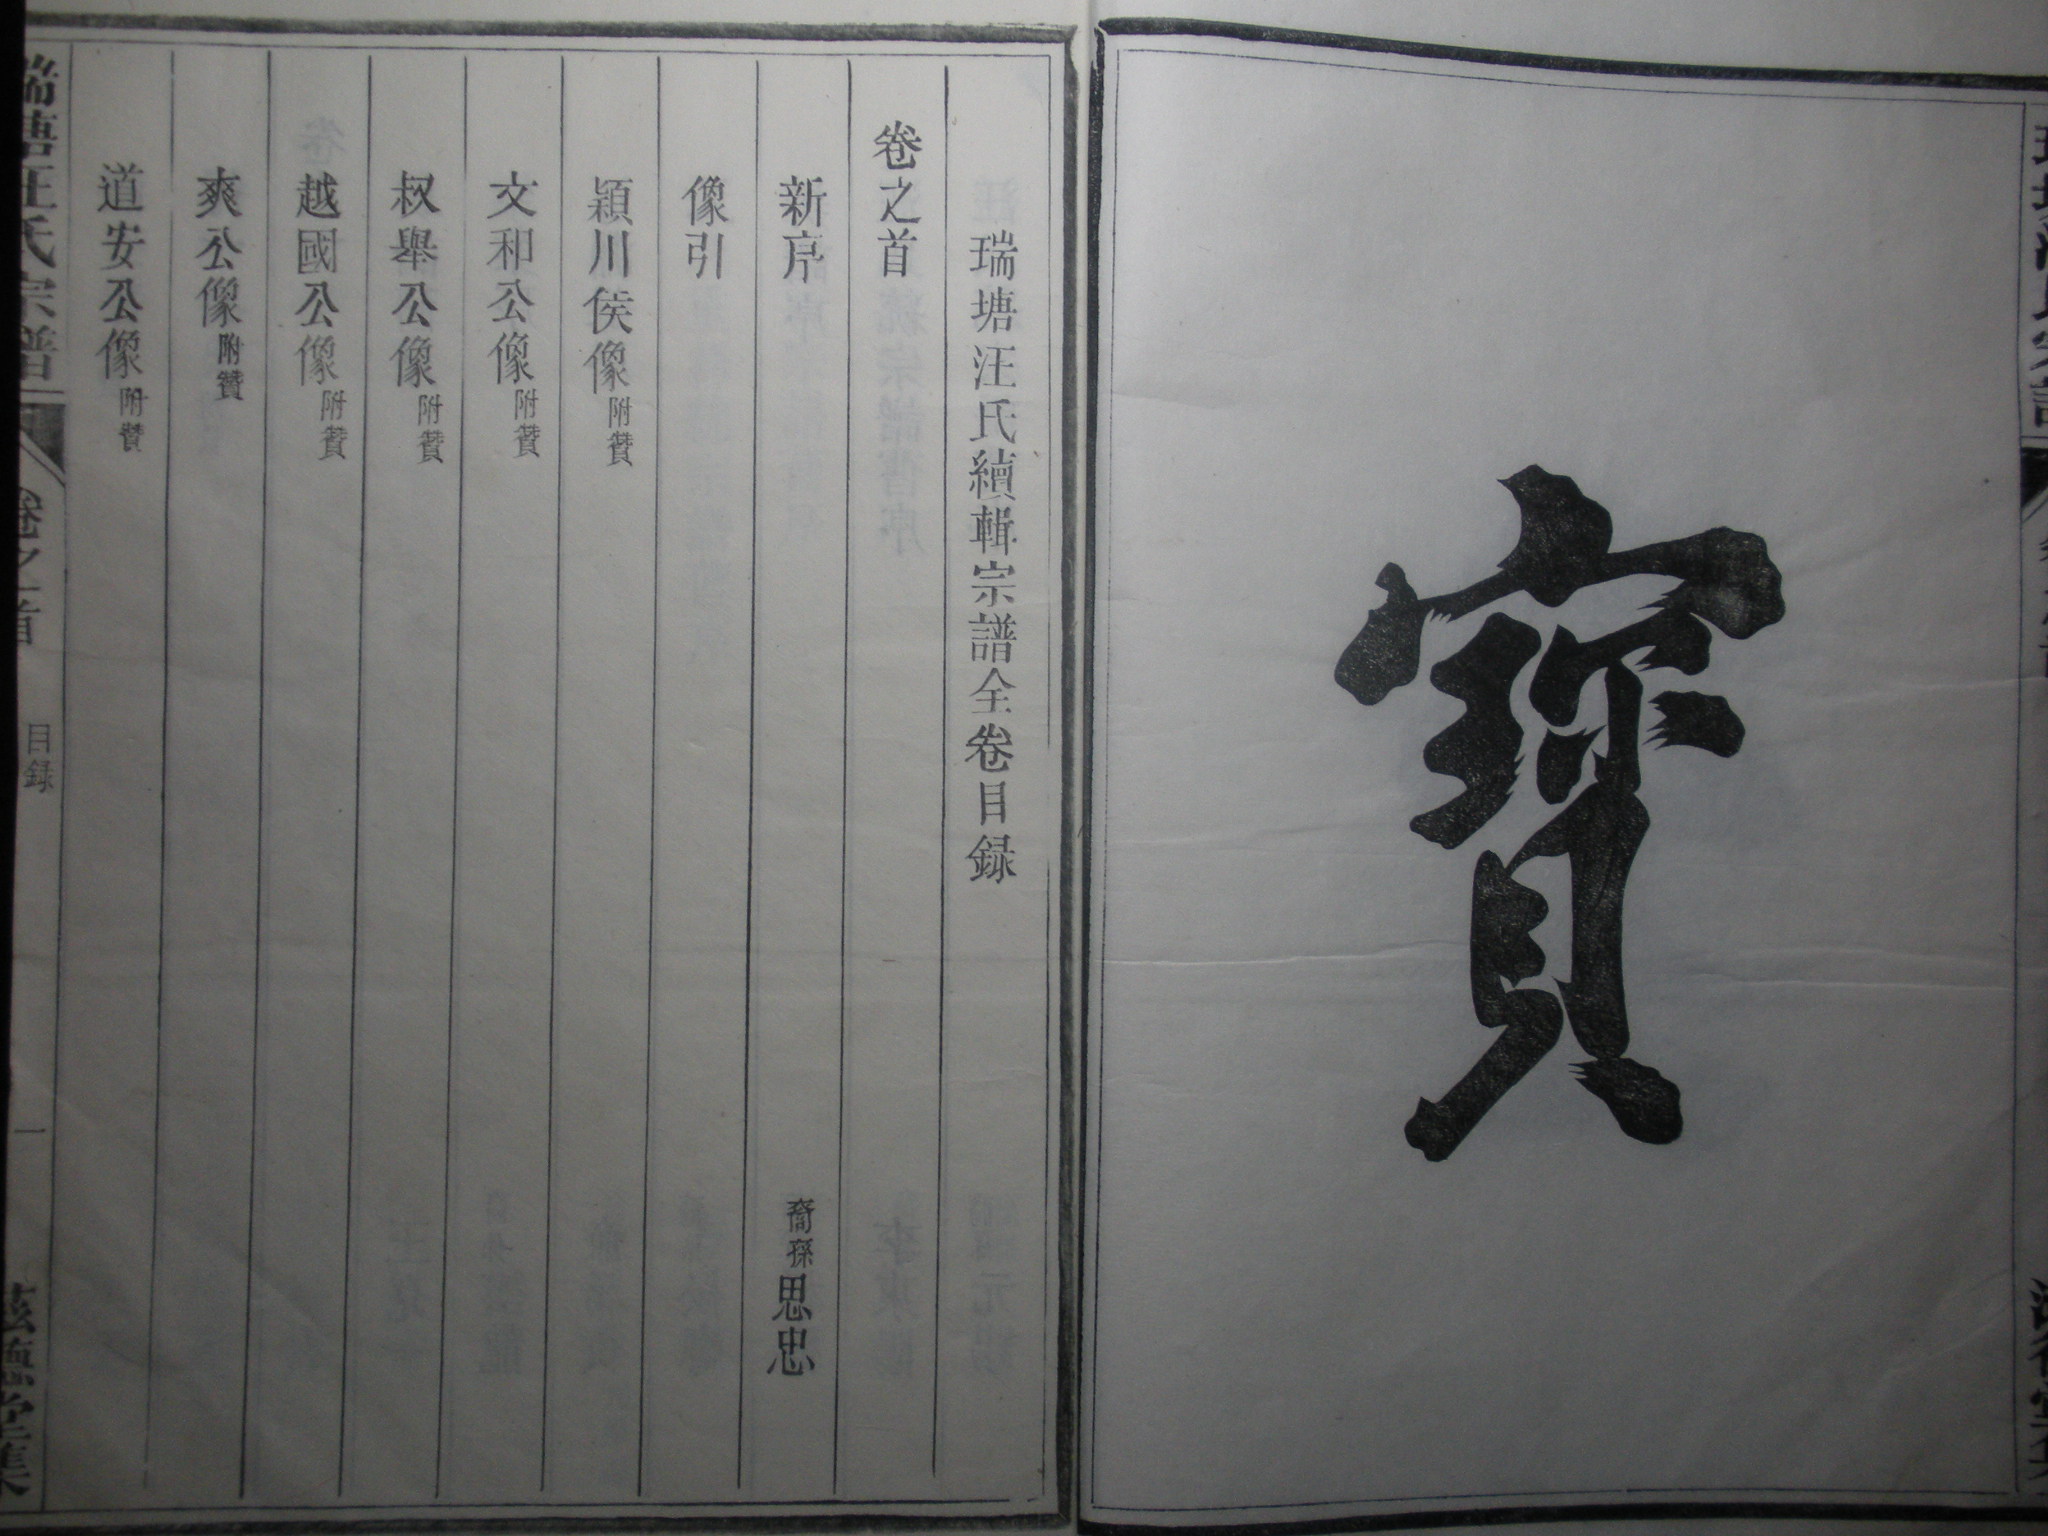 寳
瑞塘汪氏續輯宗譜全卷目録
卷之首
新序 裔孫思忠
像引
潁川侯像附贊
文和公像附贊
叔舉公像附贊
越國公像附贊
爽公像附贊
道安公像附贊
瑞塘汪氏宗譜 卷之首 目録 一